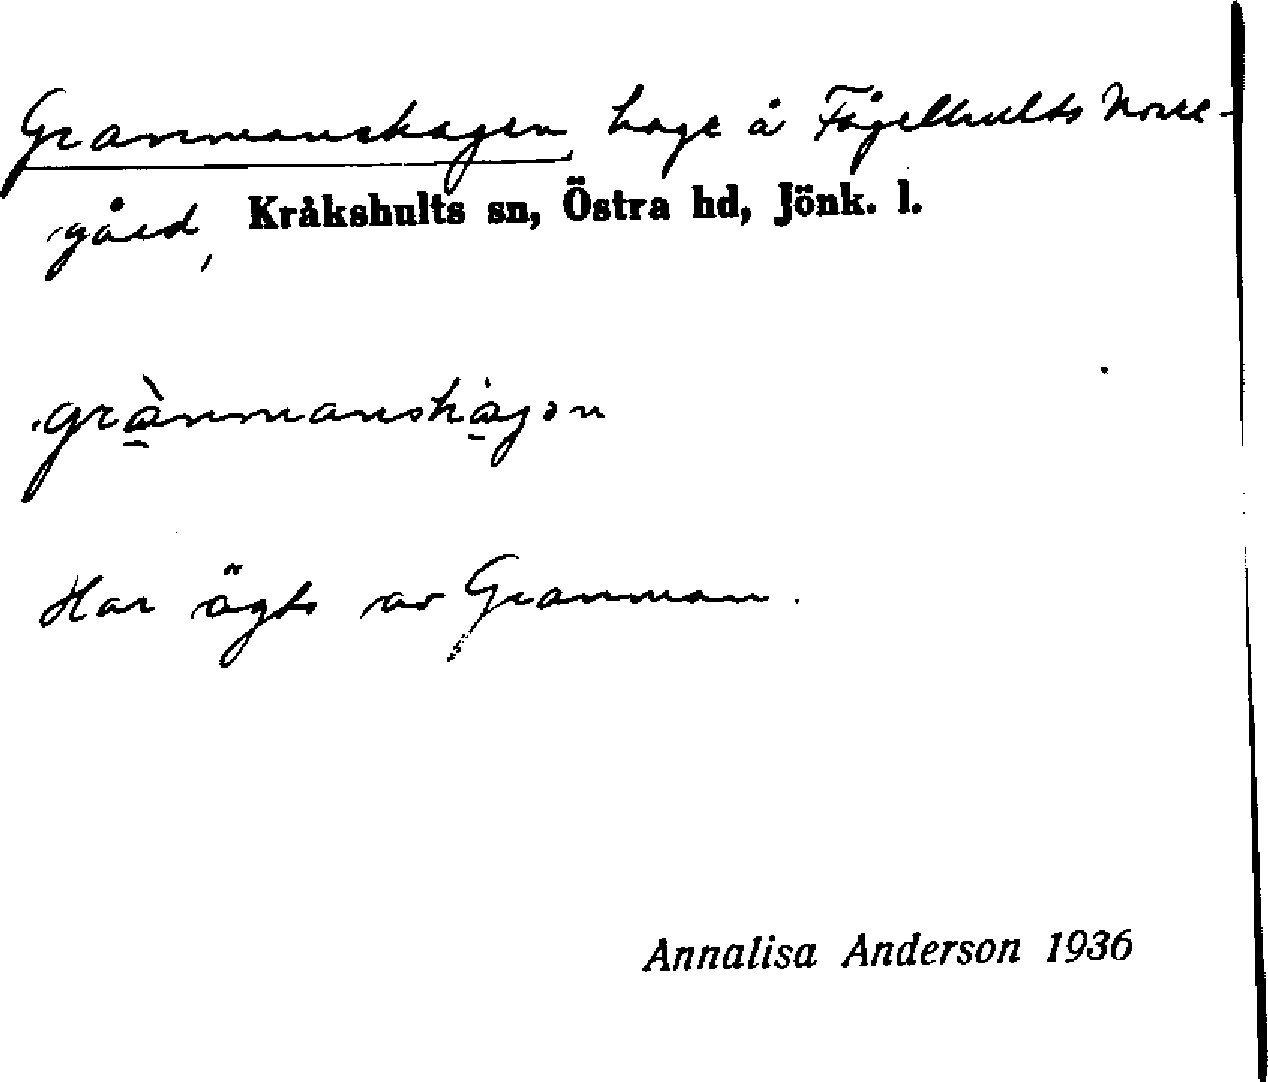 Granmanshagen, hage å Fågelhults Norre-
gård, Kråkshults sn, Östra hd, Jönk. l.
grànmanshàgən
Har ägts av Granman.
Annalisa Anderson 1936